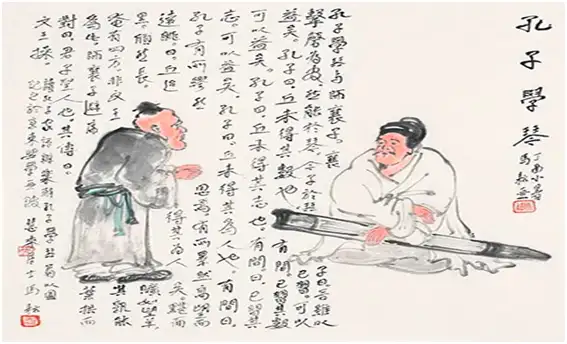 孔子學琴
丁酉小暑
孔子學琴於師襄子。襄子曰吾雖以
擊磬為官然能於琴今子於琴已習。可以
益矣。孔子曰。丘未得其數也。有間曰已習其數
可以益矣。孔子曰。丘未得其志也。有間曰。已習其
志。可以益矣。孔子曰。丘未得其為人也。有間曰。
孔子有所繆然思焉。有所睪然高望而
遠眺。曰。丘迨得其為人矣。黮而
黑。頎然長。曠如望羊
奄有四方非文王其孰能
為此。師襄子避席葉拱而
對曰。君子聖人也。其傳曰
文王操。